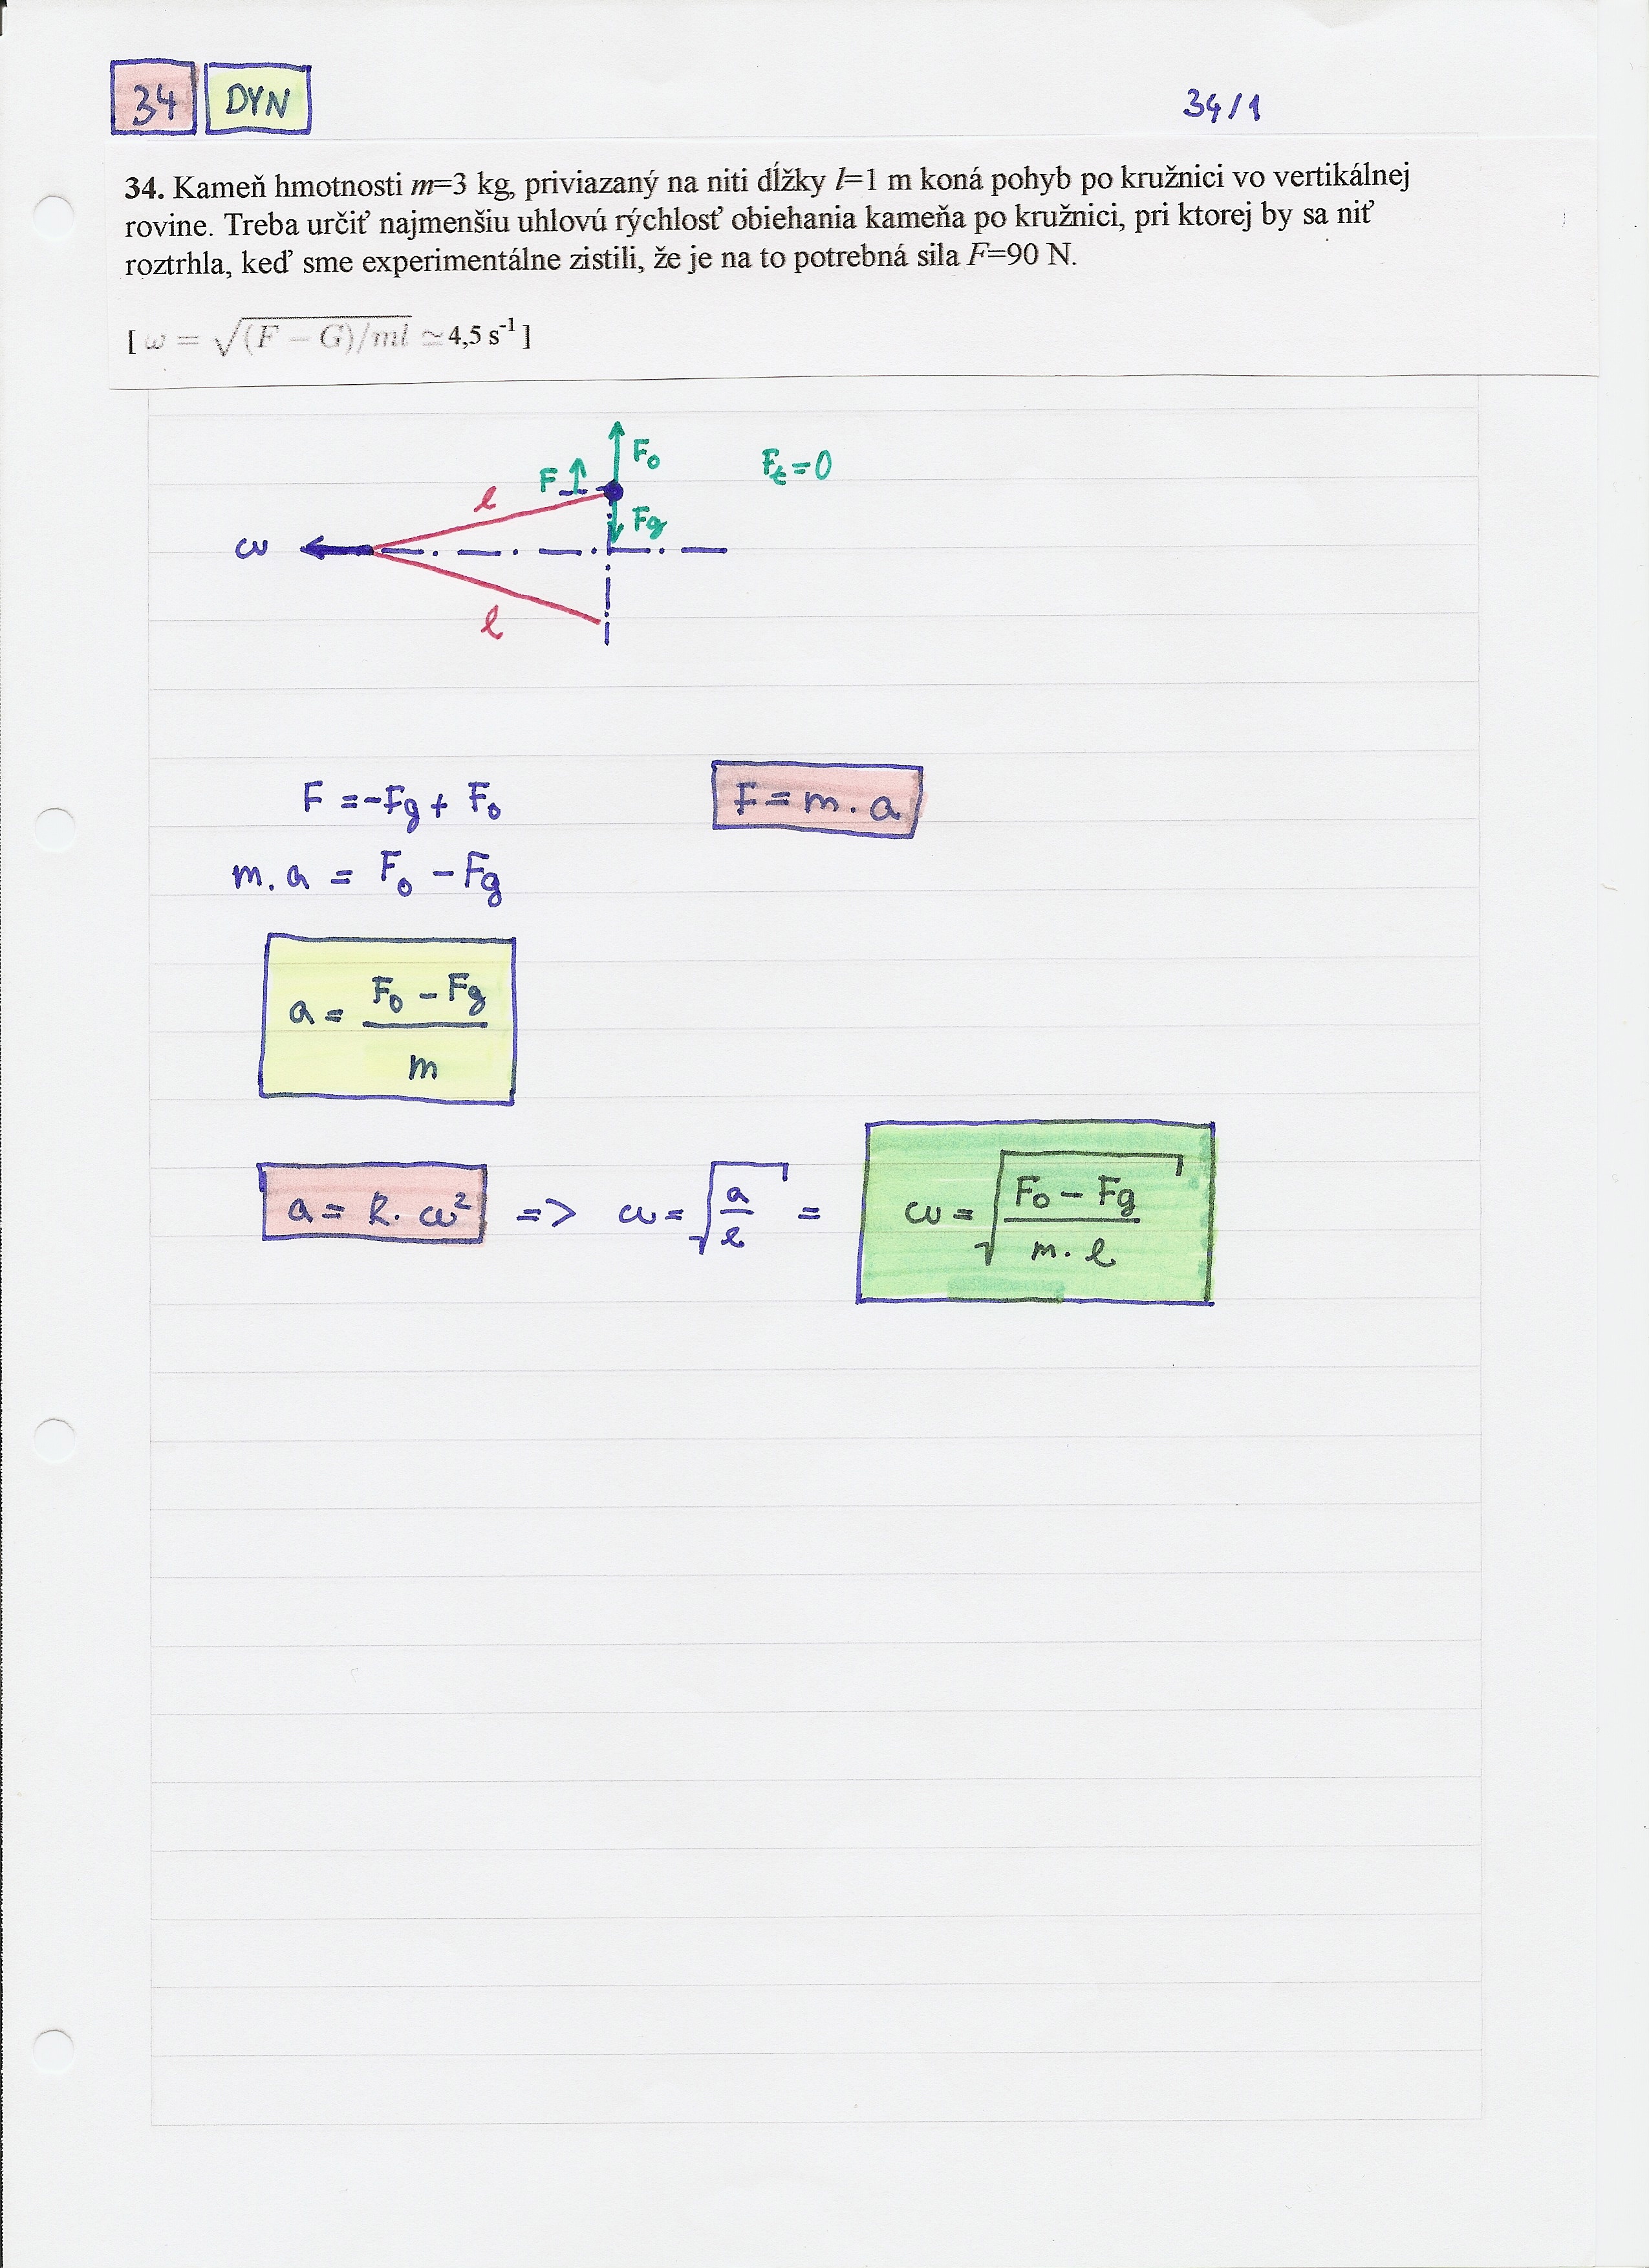 34 DYN 34/1
34. Kameň hmotnosti m=3 kg, priviazaný na niti dĺžky l=1 m koná pohyb po kružnici vo vertikálnej
rovine. Treba určiť najmenšiu uhlovú rýchlosť obiehania kameňa po kružnici, pri ktorej by sa niť
roztrhla, keď sme experimentálne zistili, že je na to potrebná sila F=90 N.
[ ω = √(F − G)/ml ≃ 4,5 s⁻¹ ]
F₀
F Fₜ=0
l
Fg
ω
l
F = -Fg + F₀ F = m . a
m . a = F₀ - Fg
a = (F₀ - Fg)/m
a = R . ω² => ω = √(a/l) = ω = √((F₀ - Fg)/(m . l))